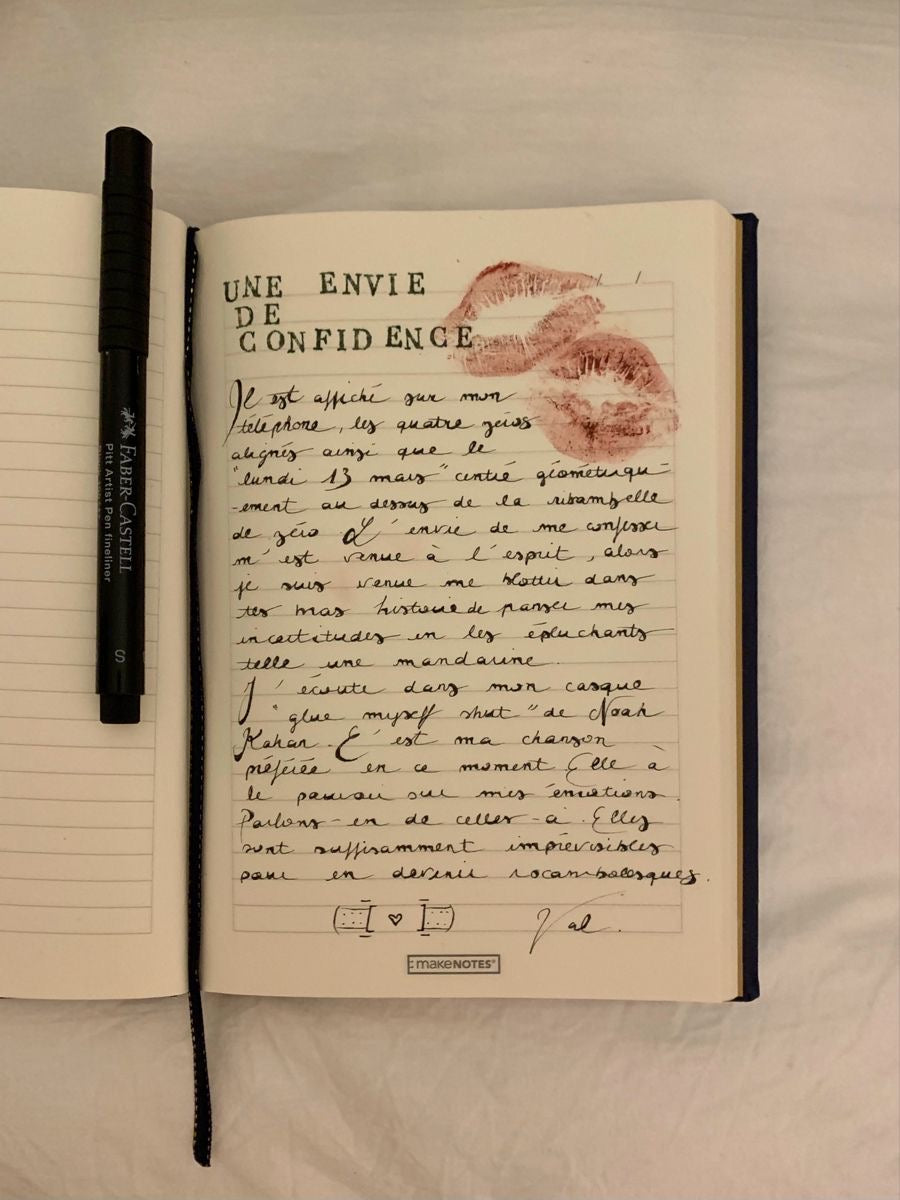 UNE ENVIE
DE
CONFIDENCE
/ /
Il est affiché sur mon
téléphone, les quatre zéros
alignés ainsi que le
"lundi 13 mars" centré géométriqu-
-ement au dessus de la ribambelle
de zéro L'envie de me confesser
m'est venue à l'esprit, alors
je suis venue me blottir dans
tes bras histoire de panser mes
incertitudes en les épluchants
telle une mandarine.
J'écoute dans mon casque
"glue myself shut" de Noah
Kahan. C'est ma chanson
préférée en ce moment Elle a
le pouvoir sur mes émotions.
Parlons-en de celles-à. Elles
sont suffisamment imprévisibles
pour en devenir rocambolesques.
Val.
:makeNOTES®
FABER-CASTELL
Pitt Artist Pen fineliner
S